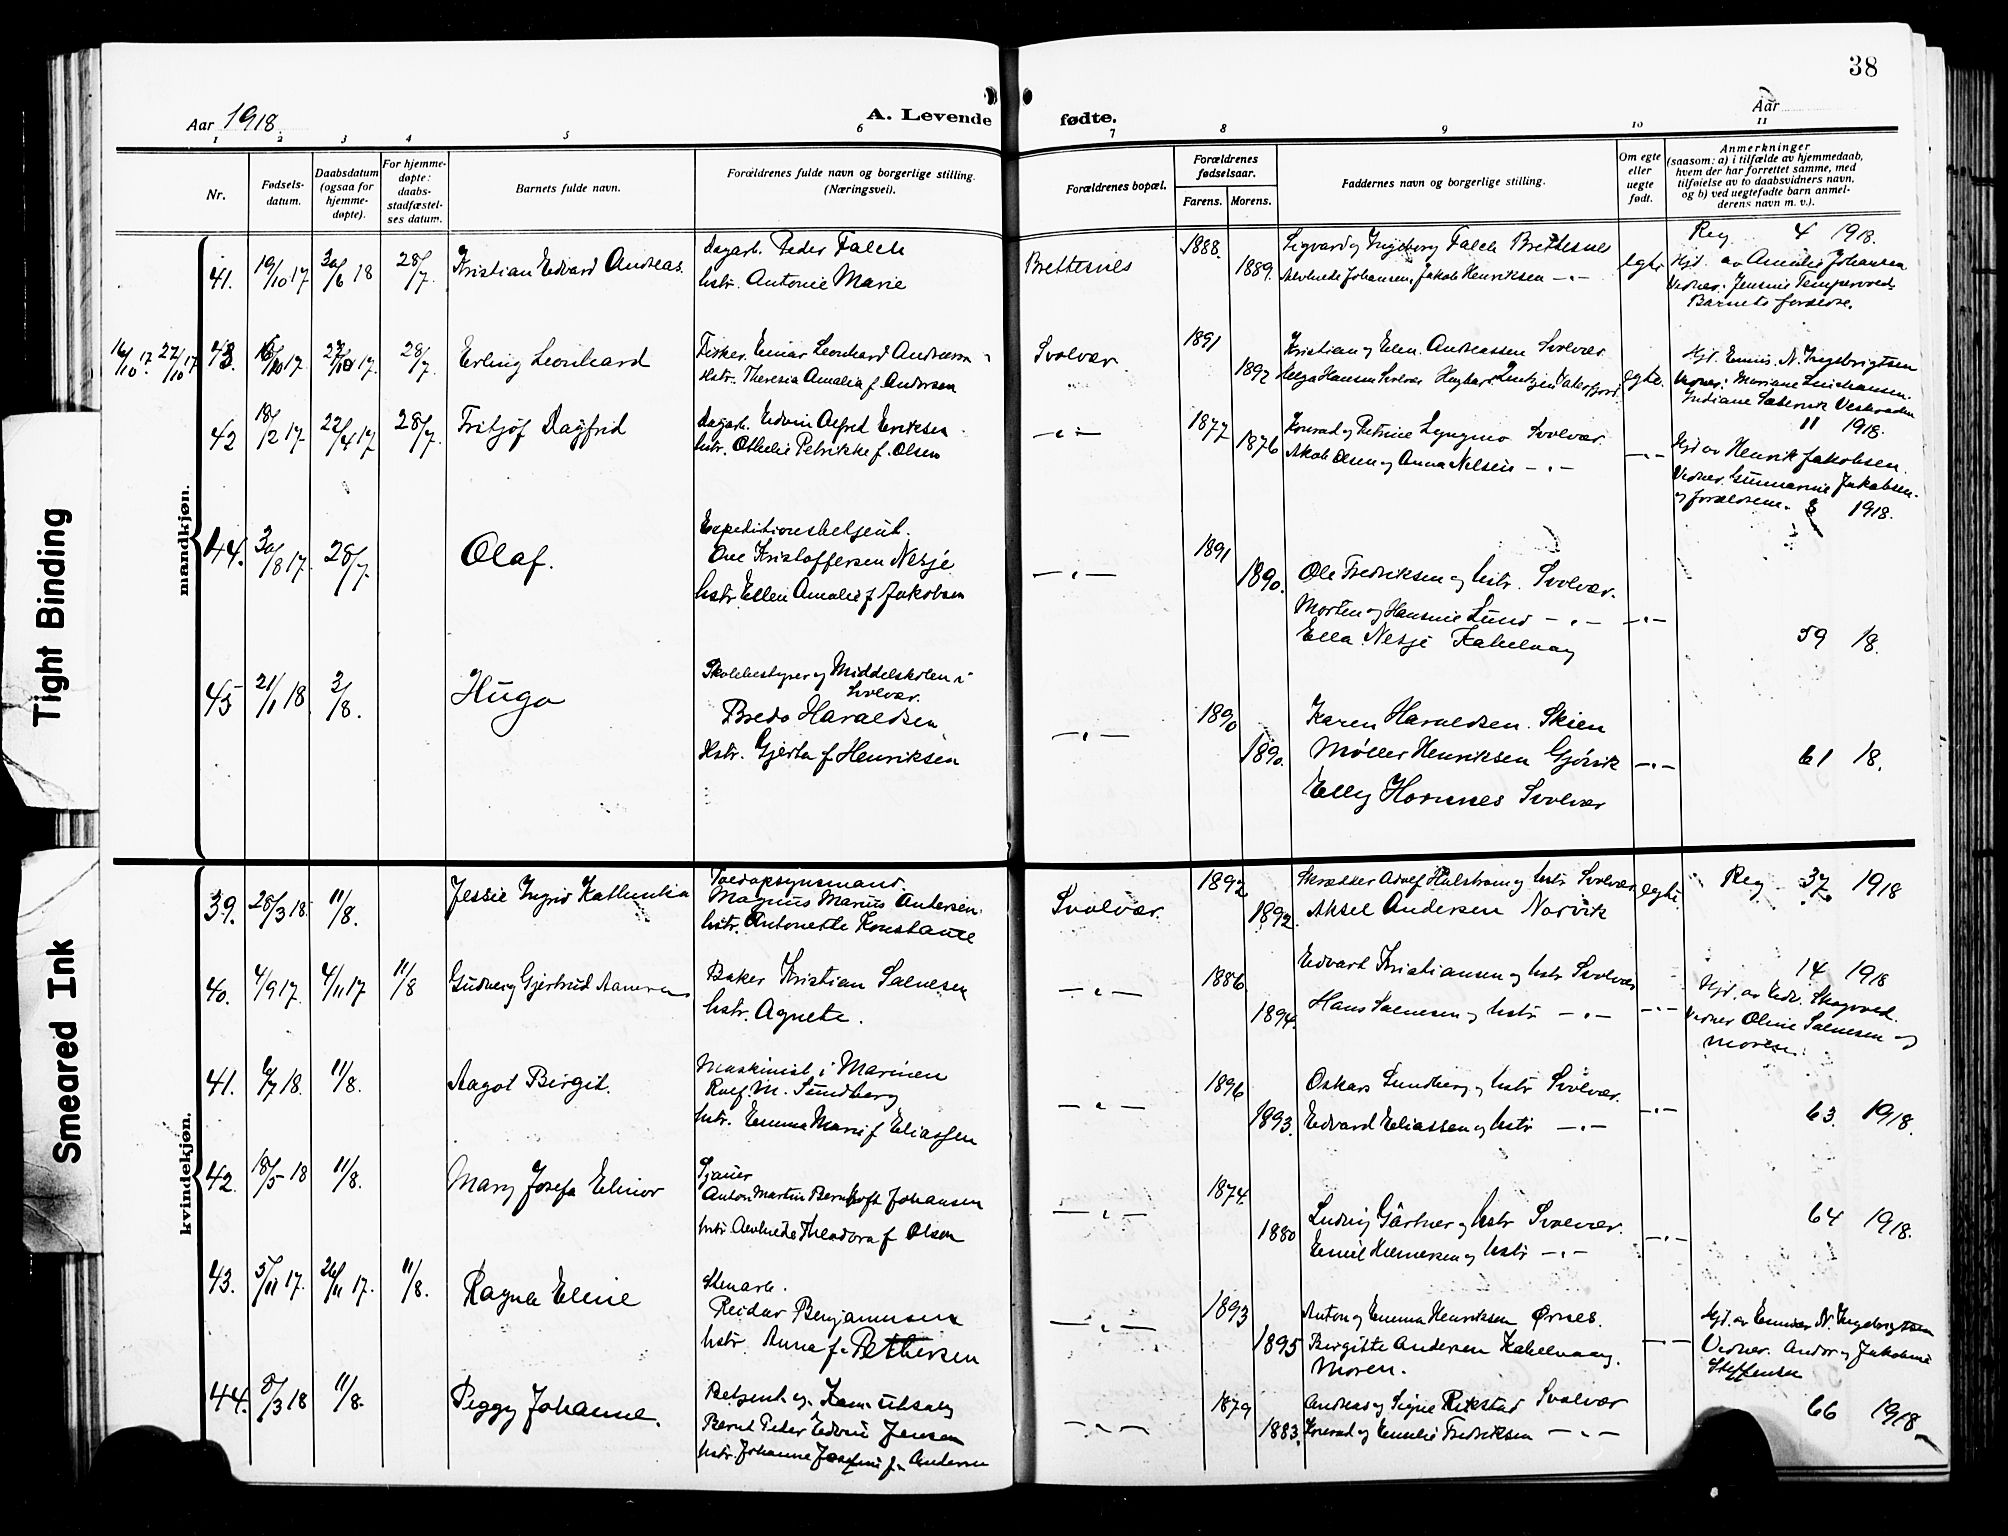 38
Aar 1918.
A. Levende fødte.
Aar
1 2 3 4 5 6 7 8 9 10 11
Nr.
Fødsels-
datum.
Daabsdatum
(ogsaa for
hjemme-
døpte).
For hjemme-
døpte:
daabs-
stadfæstel-
ses datum.
Barnets fulde navn.
Forældrenes fulde navn og borgerlige stilling.
(Næringsvei).
Forældrenes bopæl.
Forældrenes
fødselsaar.
Farens. Morens.
Faddernes navn og borgerlige stilling.
Om egte
eller
uegte
født.
Anmerkninger
(saasom: a) i tilfælde av hjemmedaab,
hvem der har forrettet samme, med
tilføielse av to daabsvidners navn,
og b) ved uegtefødte barn anmel-
derens navn m. v.).
mandkjøn.
41. 19/10 17 30/6 18 28/7. Kristian Edvard Andreas.
Dagarb. Peder Falch
hstr. Antonie Marie
Brettesnes
1888.
1889.
Sigvard og Ingeborg Falch Brettesnes
Alvhilde Johansen, Jakob Henriksen —"—
egte
Reg. 4 1918.
Hjd. av Amalie Johansen
Vidner: Jensine
Barnets forældre.
16/10 17. 27/10 17
43. 17 17. 28/7. Erling Leonhard
Fisker. Einar Leonhard Andreassen
Hstr. Theresia Amalia f. Andersen
Svolvær
1891
1892
Kristian og Elen Andreassen Svolvær
Helga Hansen Svolvær
egte.
Hjd. N. Ingebrigtsen
Vidner: Mariane
11 1918.
42 18/12 17. 22/4 17. 28/7. Fritjof Dagfrid
Dagarb. Edvin Alfred Eriksen
hstr. Othelie Petrikke f. Olsen
—"—
1877
1876
Konrad og Petrine Lyngmo Svolvær.
Jakob Olsen og Anna Nilsen —"—
—"—
Hjd av Henrik Jakobsen.
Vidner. Gunnarine Jakobsen
og forældrene. 3 1918.
44. 30/8 17. 28/7. Olaf.
Expeditionsbetjent.
Ove Kristoffersen Nesje
hstr. Ellen Amalie f Jakobsen
—"—
1891
1890.
Ole Fredriksen og hstr. Svolvær.
Morten og Hansine Lund —"—
Ella Nesje Kabelvaag
—"—
59 18.
45 21/1 18 2/8. Hugo
Skolebestyrer og Middelskolen i
Svolvær.
Bredo Haraldsen
Hstr. Gjerta f Henriksen
—"—
1890
1890.
Karen Haraldsen. Skien
Møller Henriksen Gjøvik
Elly Hornnes Svolvær
—"—
61 18.
kvindekjøn.
39. 28/3 18. 11/8. Jessie Ingrid Kathinka
Toldopsynsmand.
Magnus Marius Antersen.
hstr. Antonette Konstance
Svolvær.
1892
1892.
Skrædder Adolf Hulstrøm og hstr Svolvær
Aksel Andersen Narvik
egte.
Reg 37. 1918
40. 4/9 17. 4/11 17 11/8 Gudveig Gjertrud
Baker Kristian Salnesen
hstr. Agnete.
—"—
1886
1894.
Edvart Kristiansen og hstr Svolvær
Hans Salnesen og hstr —"—
—"—
14 1918
Hjd. av Edv. Skogvad.
Vidner Oline Salnesen og
Moren.
41. 6/7 18. 11/8. Aagot Birgit.
Maskinist i Marinen
Rolf. M. Sundberg
hstr. Emma Marie f Eliassen
—"—
1896
1893.
Oskar Sundberg og hstr Svolvær.
Edvard Eliassen og hstr —"—
—"—
63. 1918.
42. 18/5 18 11/8. Mary Josefa Elinor
Sjauer
Anton Martin Bernhoft Johansen
hstr Alvhilde Theodora f Olsen
—"—
1874.
1880
Ludvig Gärtner og hstr Svolvær.
Emil og hstr —"—
—"—
64 1918.
43. 5/11 17. 26/11 17. 11/8. Ragna Eline
Stenarb.
Reidar Benjaminsen
hstr. Anna f. Pettersen
—"—
1893
1895
Anton og Emma Henriksen Ørnes.
Birgitte Andersen Kabelvaag.
Moren.
—"—
Hjd. av N. Ingebrigtsen
Vidner. Andor og Jakobine
Steffensen
44. 8/3 18 11/8. Peggy Johanne.
Betjent og
Bernt Peder Edvin Jensen
hstr. Johanne Josefine f. Andersen
—"—
1879
1883.
Andreas og Signe Rikstad Svolvær
Konrad og Emilie Fredriksen —"—
66 1918.
Tight Binding
Smeared Ink